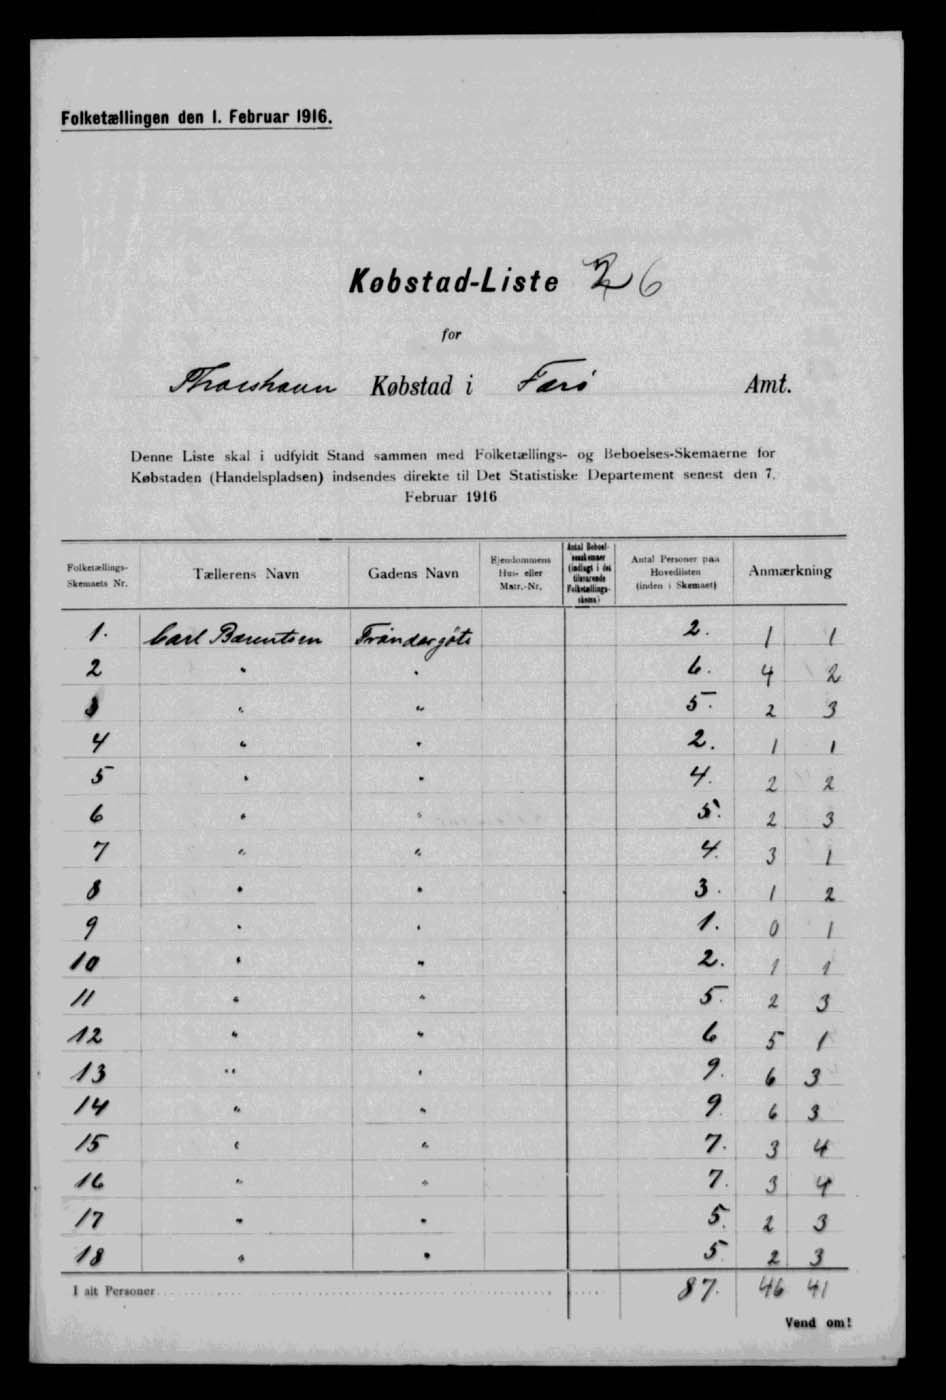 Folketællingen den 1. Februar 1916.
Købstad-Liste 26
for
Thorshavn Købstad i Færø Amt.
Denne Liste skal i udfyldt Stand sammen med Folketællings- og Beboelses-Skemaerne for
Købstaden (Handelspladsen) indsendes direkte til Det Statistiske Departement senest den 7.
Februar 1916
Folketællings-Skemaets Nr. Tællerens Navn Gadens Navn Ejendommens Hus- eller Matr.-Nr. Antal Beboelsesskemaer (indlagt i det tilsvarende Folketællings-skema) Antal Personer paa Hovedlisten (inden i Skemaet) Anmærkning
1. Carl Bærentsen Tróndargöta 2. 1 1
2 " " 6. 4 2
3 " " 5. 2 3
4 " " 2. 1 1
5 " " 4. 2 2
6 " " 5. 2 3
7 " " 4. 3 1
8 " " 3. 1 2
9 " " 1. 0 1
10 " " 2. 1 1
11 " " 5. 2 3
12 " " 6 5 1
13 " " 9. 6 3
14 " " 9. 6 3
15 " " 7. 3 4
16 " " 7. 3 4
17 " " 5. 2 3
18 " " 5. 2 3
I alt Personer 87. 46 41
Vend om!